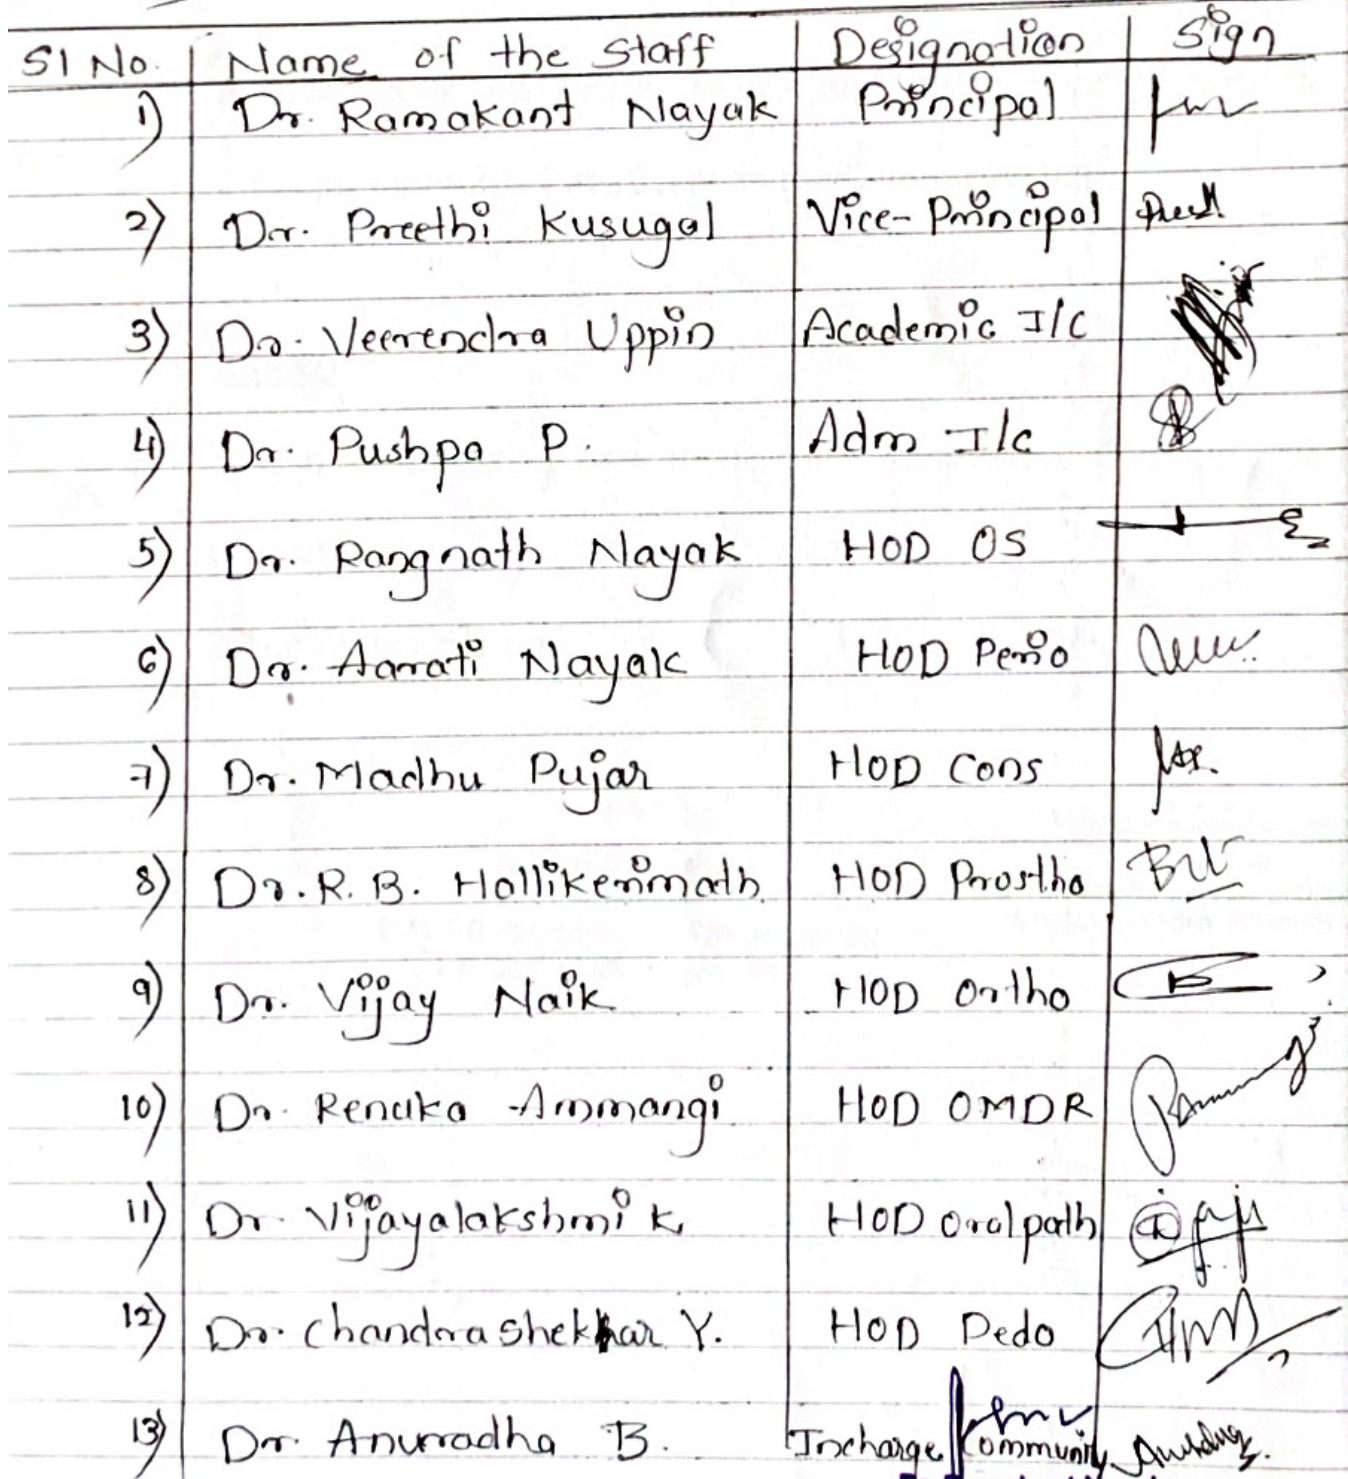 Sl No. Name of the Staff Designation Sign
1) Dr. Ramakant Nayak Principal
2) Dr. Preethi Kusugal Vice-Principal
3) Dr. Veerendra Uppin Academic I/C
4) Dr. Pushpa P. Adm I/c
5) Dr. Rangnath Nayak HOD OS
6) Dr. Aarati Nayak HOD Perio
7) Dr. Madhu Pujar HOD Cons
8) Dr. R. B. Hallikerimath HOD Prostho
9) Dr. Vijay Naik HOD Ortho
10) Dr. Renuka Ammangi HOD OMDR
11) Dr. Vijayalakshmi K HOD Oralpath
12) Dr. Chandrashekhar Y. HOD Pedo
13) Dr. Anurradha B. Incharge Community